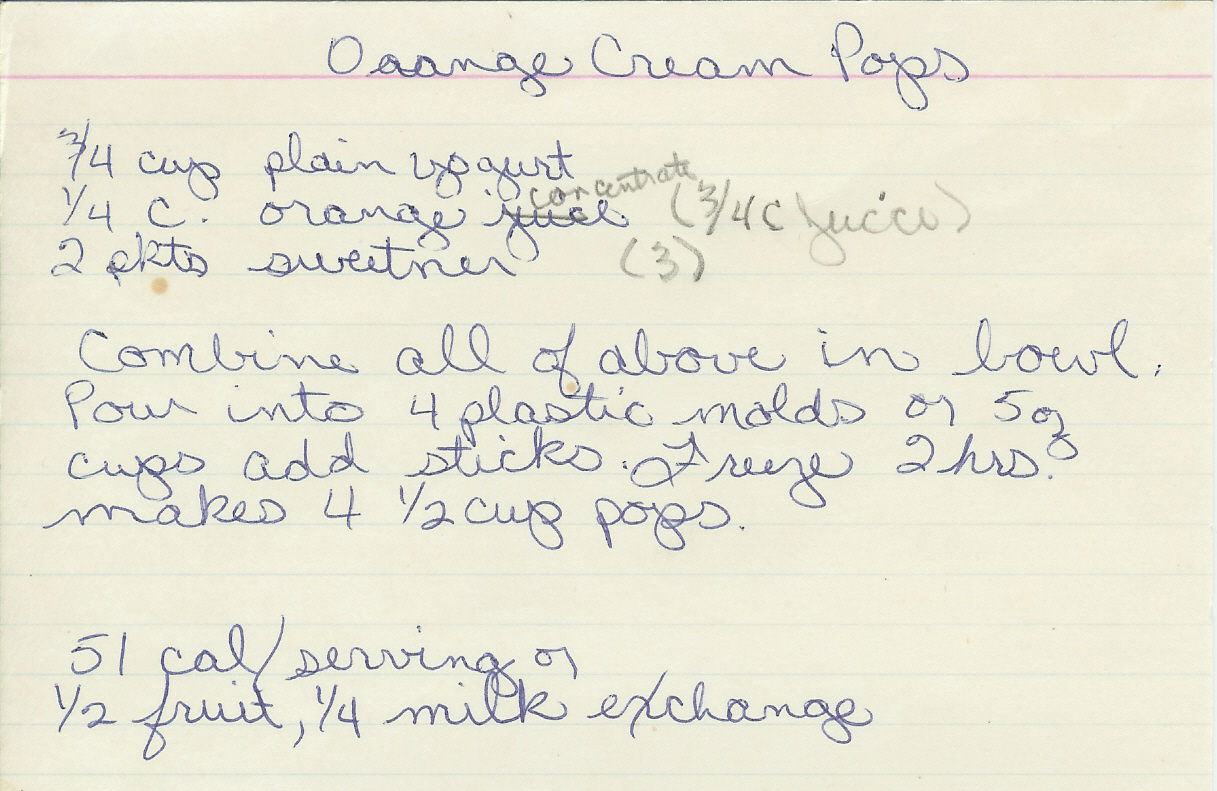 Oaange Cream Pops
3/4 cup plain yogurt
1/4 c. orange juice concentrate (3/4 c juice)
2 pkts sweetner (3)
Combine all of above in bowl.
Pour into 4 plastic molds or 5 oz
cups add sticks. Freeze 2 hrs.
makes 4 1/2 cup pops.
51 cal/serving or
1/2 fruit, 1/4 milk exchange